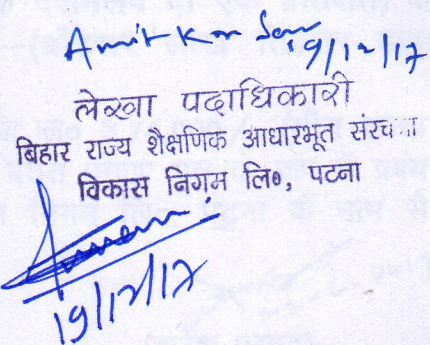 Amit Kr Sen 19/12/17
लेखा पदाधिकारी
बिहार राज्य शैक्षणिक आधारभूत संरचना
विकास निगम लि०, पटना
19/12/17